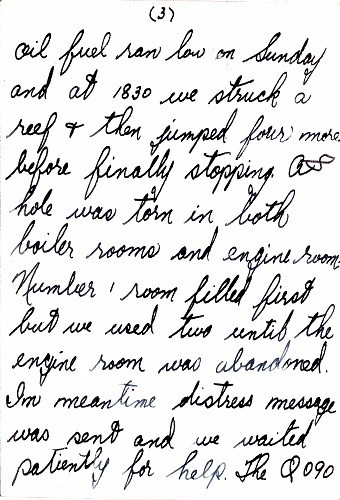 (3)
oil fuel ran low on Sunday
and at 1830 we struck a
reef & then jumped four more
before finally stopping. A
hole was torn in both
boiler rooms and engine room
Number 1 room filled first
but we used two until the
engine room was abandoned.
In meantime distress message
was sent and we waited
patiently for help. The Q090